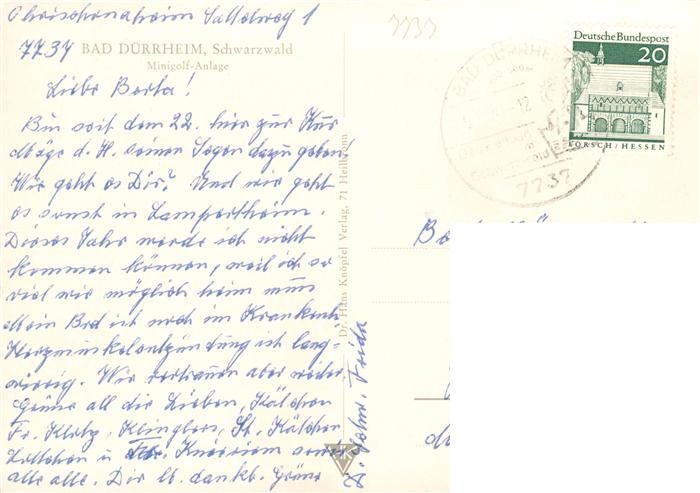 Christenaheim Sattelweg 1
7737 BAD DÜRRHEIM, Schwarzwald
Minigolf-Anlage
Liebe Berta!
Bin seit dem 22. hier zur Kur
Möge d. H. seinen Segen dazu geben!
Wie geht es Dir? Und wie geht
es sonst in Lampertheim.
Dieses Jahr werde ich nicht
kommen können, weil ich so
viel wie möglich heim muss
Mein Brd ist noch im Krankenh.
Herzmuskelentzündung ist lang-
wierig. Wir vertrauen aber weiter.
Grüsse all die Lieben, Kätchen
Fr. Klotz, Klinglers, St. Kätchen
u. Knieriem sowie
alle alle. Dir lb. dankb. Grüsse
Frida
Dr. Hans Knöpfel Verlag, 71 Heilbronn
7737
BAD DÜRRHEIM
12
7737
Deutsche Bundespost
20
LORSCH/HESSEN